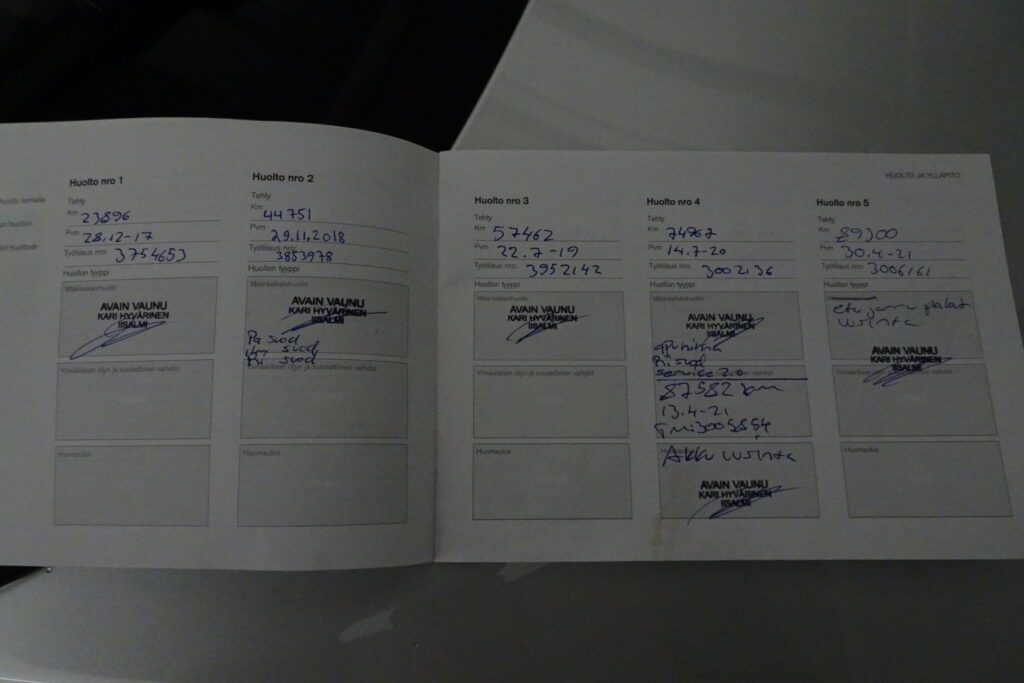 HUOLTO JA YLLÄPITO
Huolto nro 1
Tehty
Km 23896
Pvm 28.12-17
Työtilaus nro: 3754653
Huollon tyyppi
Määräaikaishuolto
AVAIN VAUNU
KARI HYVÄRINEN
IISALMI
Ylimääräiset öljyn ja suodattimen vaihdot
Huomautus
Huolto nro 2
Tehty
Km 44751
Pvm 29.11.2018
Työtilaus nro: 3853978
Huollon tyyppi
Määräaikaishuolto
AVAIN VAUNU
KARI HYVÄRINEN
IISALMI
Pa suod
suod
Ri suod
Ylimääräiset öljyn ja suodattimen vaihdot
Huomautus
Huolto nro 3
Tehty
Km 57462
Pvm 22.7-19
Työtilaus nro: 3952142
Huollon tyyppi
Määräaikaishuolto
AVAIN VAUNU
KARI HYVÄRINEN
IISALMI
Ylimääräiset öljyn ja suodattimen vaihdot
Huomautus
Huolto nro 4
Tehty
Km 74967
Pvm 14.7-20
Työtilaus nro: 3002136
Huollon tyyppi
Määräaikaishuolto
AVAIN VAUNU
KARI HYVÄRINEN
IISALMI
Ri suod
service 2.0
87582 km
13.4-21
Akku uusinta
AVAIN VAUNU
KARI HYVÄRINEN
IISALMI
Huolto nro 5
Tehty
Km 89300
Pvm 30.4-21
Työtilaus nro: 3006161
Huollon tyyppi
etu jarru palat
uusinta
AVAIN VAUNU
KARI HYVÄRINEN
IISALMI
Ylimääräiset öljyn ja suodattimen vaihdot
Huomautus